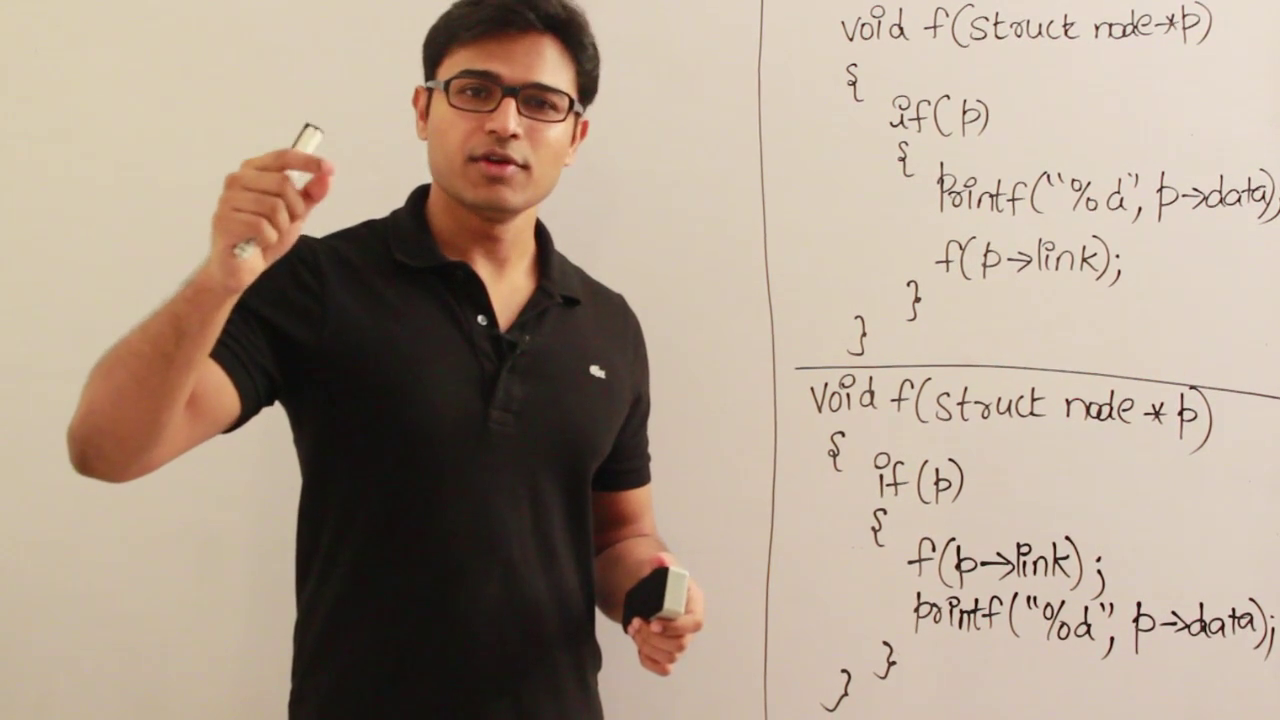 void f(struct node *p)
{
if(p)
{
printf("%d", p->data);
f(p->link);
}
}
void f(struct node * p)
{
if(p)
{
f(p->link);
printf("%d", p->data);
}
}